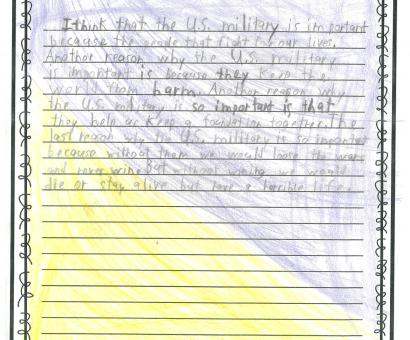 I think that the U.S. military is important
because the people that fight for our lives.
Another reason why the U.S. military
is important is because they keep the
world from harm. Another reason why
the U.S. military is so important is that
they help us keep a foundation together. The
last reason why the U.S. military is so important
because without them we would loose the wars
and never wine. But without wining we would
die or stay alive but have a terrible life.